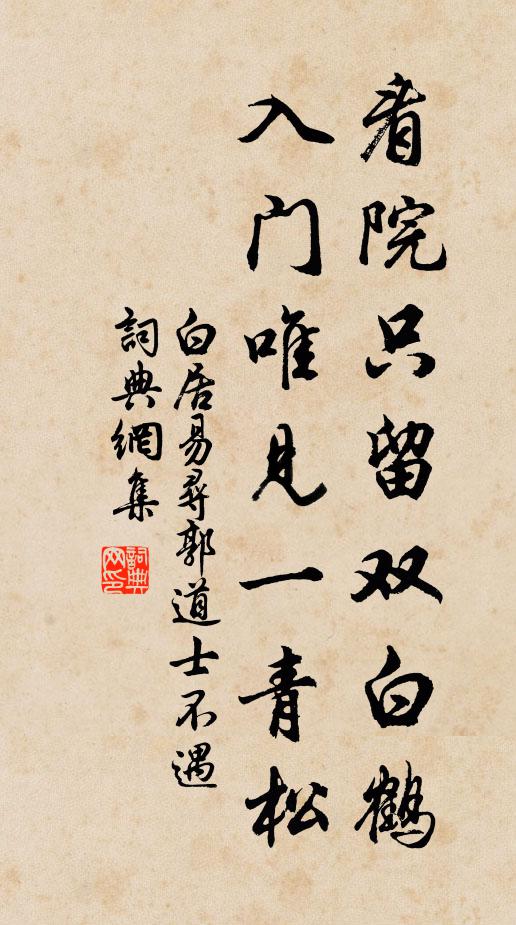 看院只留双白鹤
入门唯见一青松
白居易尋郭道士不遇
詞典網集
詞典
网印